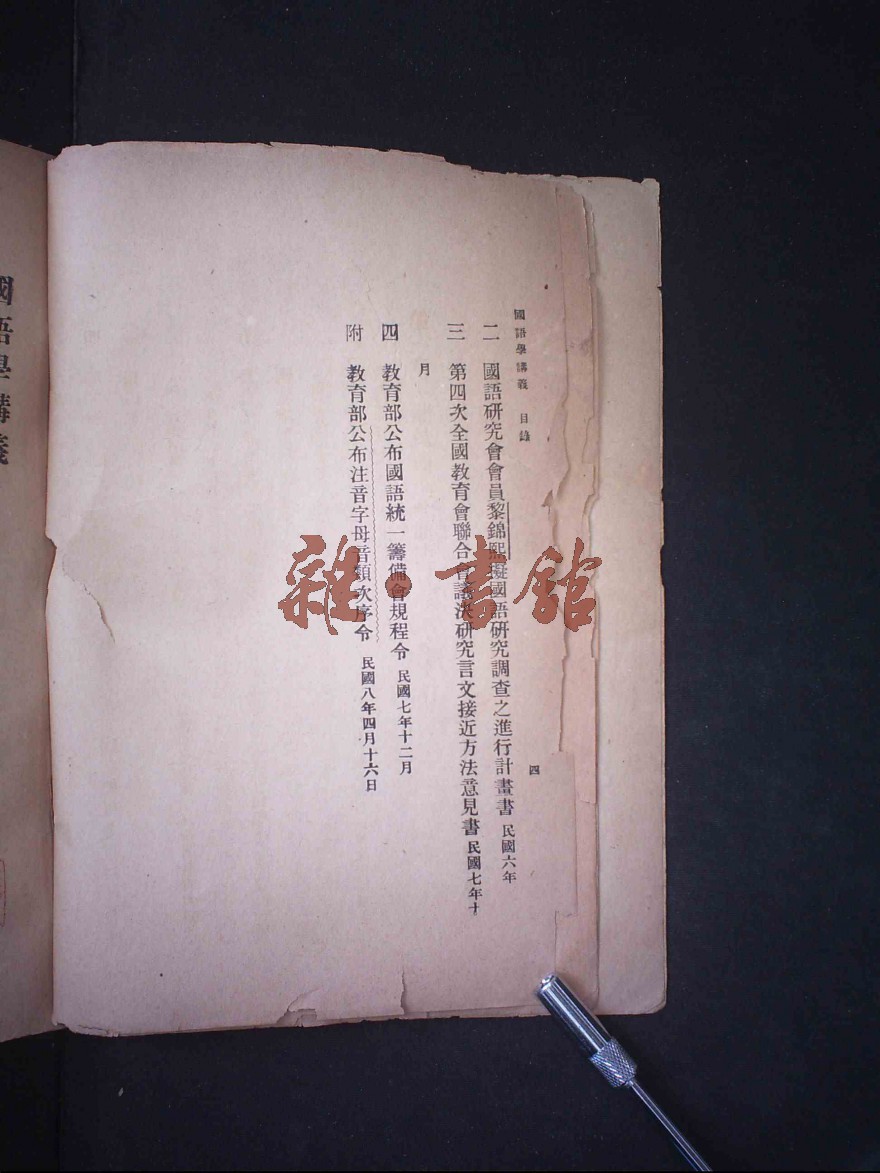 國語學講義 目錄
四
二 國語研究會會員黎錦熙擬國語研究調查之進行計畫書 民國六年
三 第四次全國教育會聯合會議決研究言文接近方法意見書 民國七年十
月
四 教育部公布國語統一籌備會規程令 民國七年十二月
附 教育部公布注音字母音類次序令 民國八年四月十六日
國語學講義
雜·書館